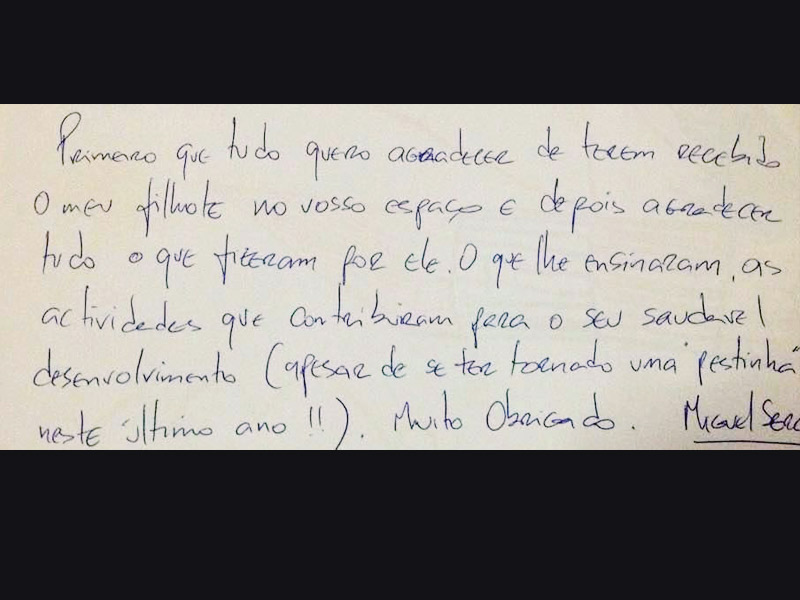 Primeiro que tudo quero agradecer de terem recebido
O meu filhote no vosso espaço e depois agradecer
tudo o que fizeram por ele. O que lhe ensinaram, as
actividades que contribuiram para o seu saudavel
desenvolvimento (apesar de se ter tornado uma "pestinha"
neste último ano !!). Muito Obrigado. Miguel